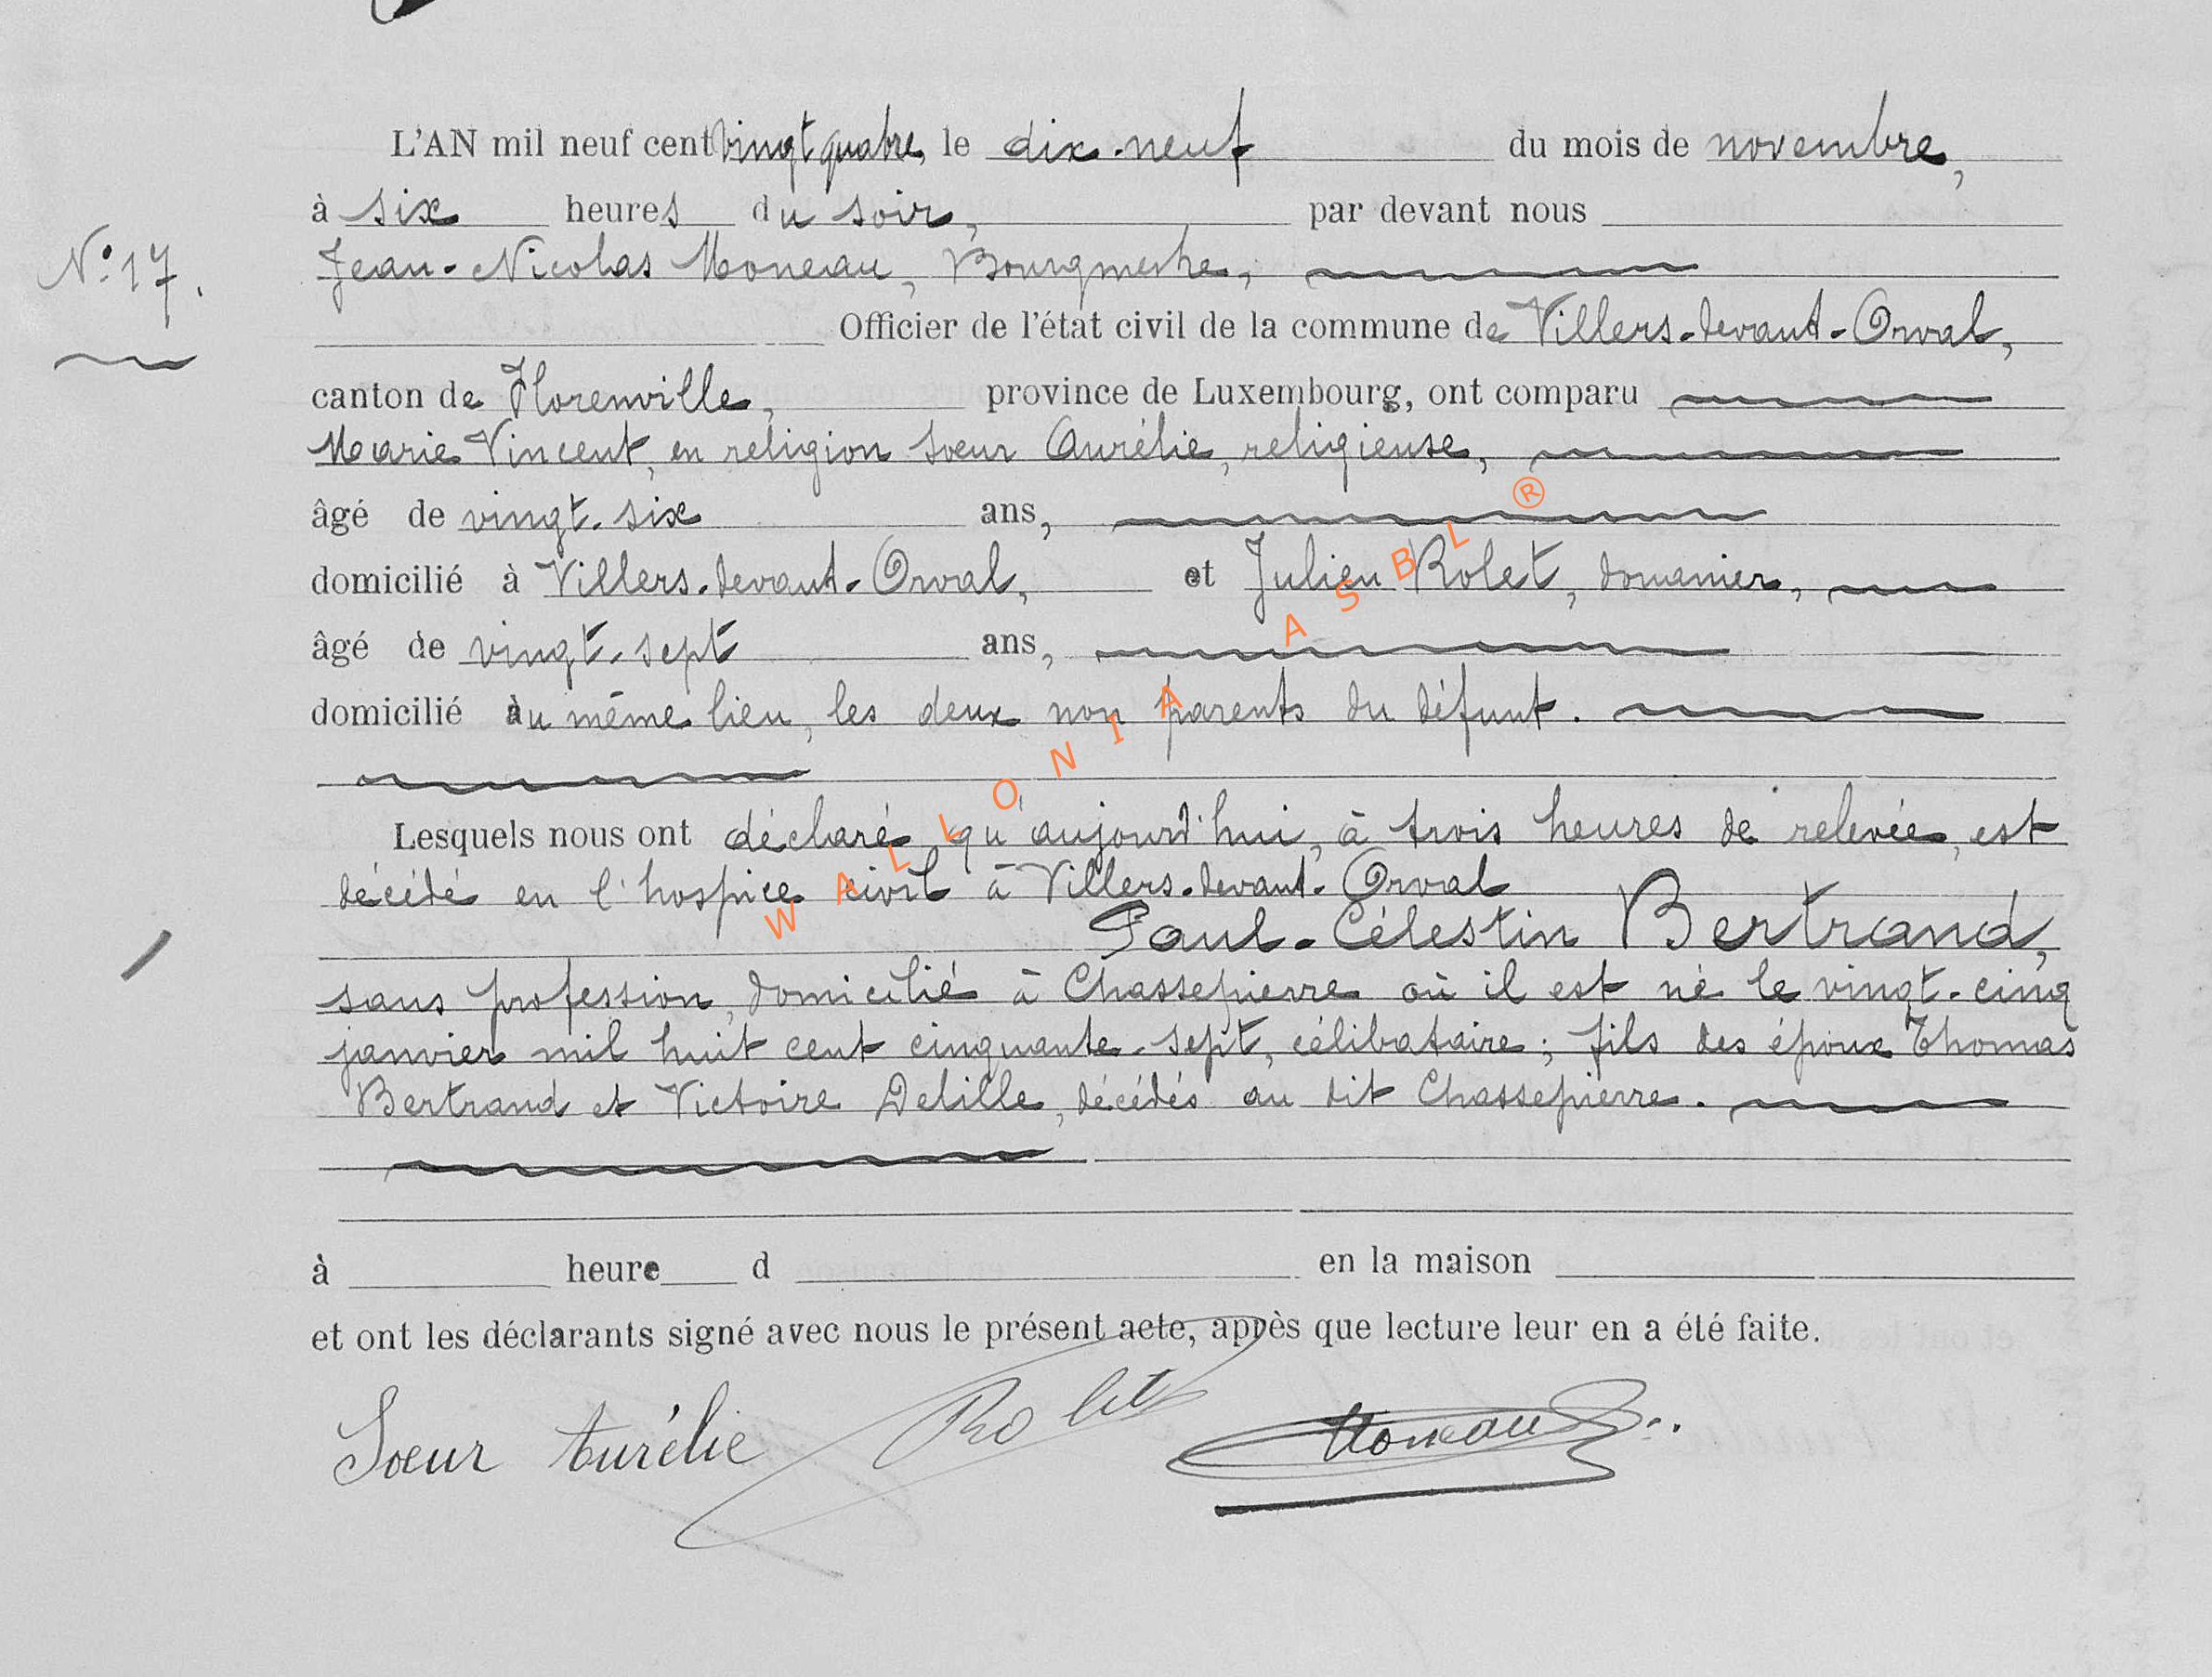 L'AN mil neuf cent vingt quatre, le dix-neuf du mois de novembre,
à six heures du soir, par devant nous
N° 17.
Jean-Nicolas Moneau, Bourgmestre,
Officier de l'état civil de la commune de Villers-devant-Orval,
canton de Florenville, province de Luxembourg, ont comparu
Marie Vincent, en religion soeur Aurélie, religieuse,
âgé de vingt-six ans,
domicilié à Villers-devant-Orval, et Julien Rolet, domanier,
âgé de vingt-sept ans,
domicilié au même lieu, les deux non parents du défunt.
Lesquels nous ont déclaré qu'aujourd'hui, à trois heures de relevée, est
décédé en l'hospice civil à Villers-devant-Orval
Paul-Célestin Bertrand,
sans profession, domicilié à Chassepierre où il est né le vingt-cinq
janvier mil huit cent cinquante-sept, célibataire; fils des époux Thomas
Bertrand et Victoire Delille, décédés au dit Chassepierre.
à heure d en la maison
et ont les déclarants signé avec nous le présent acte, après que lecture leur en a été faite.
Soeur Aurélie Rolet Moneau
WALLONIA ASBL ®